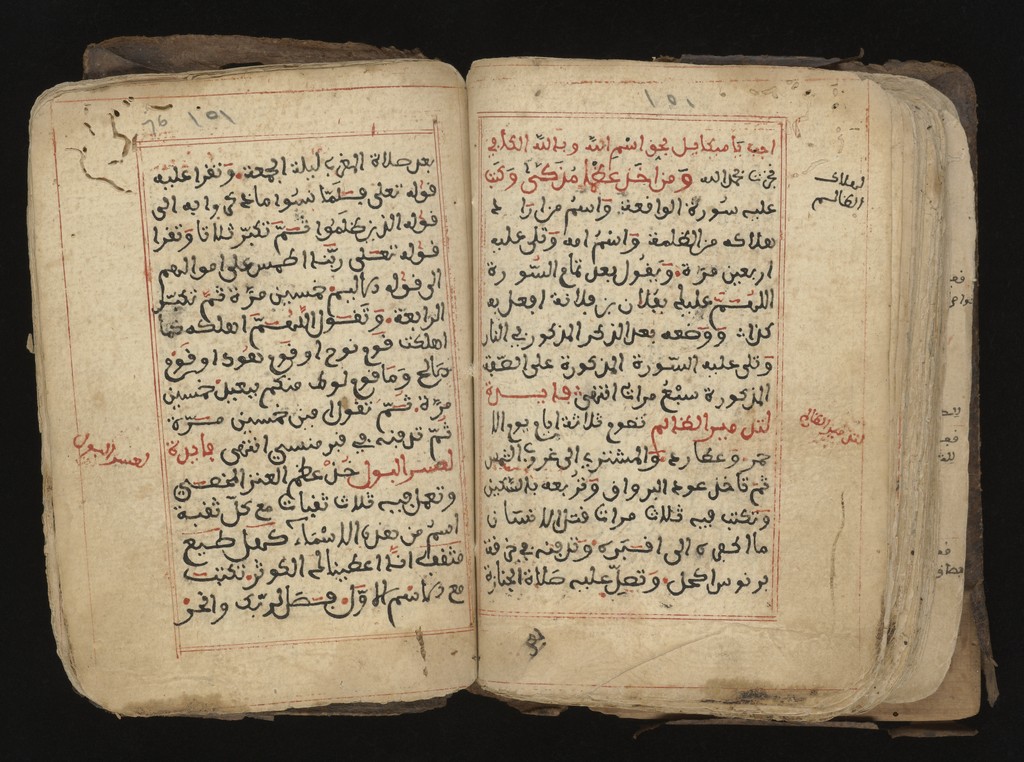 ١٥١
اجب يا ميكايل بحق اسم الله وبالله الكافي
الله ومن اخذ عظما مذكى وكتب
عليه سورة الواقعة واسم من اراد
هلاكه من الظلمة واسم امه وتلى عليه
اربعين مرة ويقول بعد تمام السورة
اللهم عليك بفلان بن فلانة افعل به
كذا ووضعه بعد الذكر المذكور في النار
وتلى عليه السورة المذكورة على الصفة
المذكورة سبع مرات انتهى فايدة
لقتل الظالم تصوم ثلاثة ايام يوم الا
حمر وعطارد والمشتري الى غروب الشمس
ثم تاخذ عود البرواق وتربعه بالسكين
وتكتب فيه ثلاث مرات قتل الانسان
ما اكفره الى اقبره وتدفنه في خرقة
برنوس اكحل وتصلي عليه صلاة الجنازة
لهلاك
الظالم
لقتل الظالم
١٥١
بعد صلاة المغرب ليلة الجمعة وتقرا عليه
قوله تعلى فلما نسوا ما ذكروا به الى
قوله الذين ظلموا ثم تكبر ثلاثا وتقرا
قوله تعلى ربنا اطمس على اموالهم
الى قوله الاليم خمسين مرة ثم تكبر
الرابعة وتقول اللهم اهلكه كما
اهلكت قوم نوح او قوم هود او قوم
صالح وما قوم لوط منكم ببعيد خمسين
مرة ثم تقول امين خمسين مرة
ثم تدفنه في قبر منسي انتهى فايدة
لعسر البول خذ عظم العنز
وتعمل فيه ثلاث ثقبات مع كل ثقبة
اسم من هذه الاسماء كهل طيع
انا اعطيناك الكوثر تكتب
مع الاسم الاول فصل لربك وانحر
لعسر البول